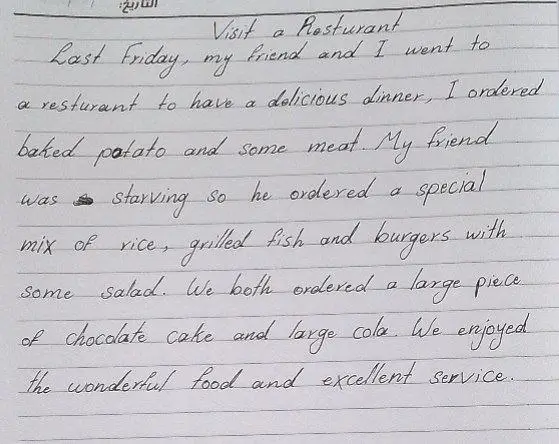 التاريخ:
Visit a Resturant
Last Friday, my friend and I went to
a resturant to have a delicious dinner, I ordered
baked potato and some meat. My friend
was starving so he ordered a special
mix of rice, grilled fish and burgers with
some salad. We both ordered a large piece
of chocolate cake and large cola. We enjoyed
the wonderful food and excellent service.